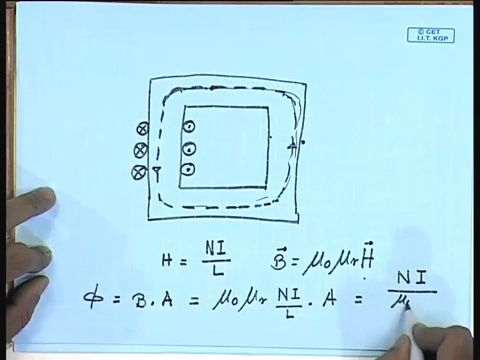 © CET
I.I.T. KGP
H = NI/L    B⃗ = μ₀ μr H⃗
ϕ = B . A = μ₀ μr NI/L . A = NI/μ